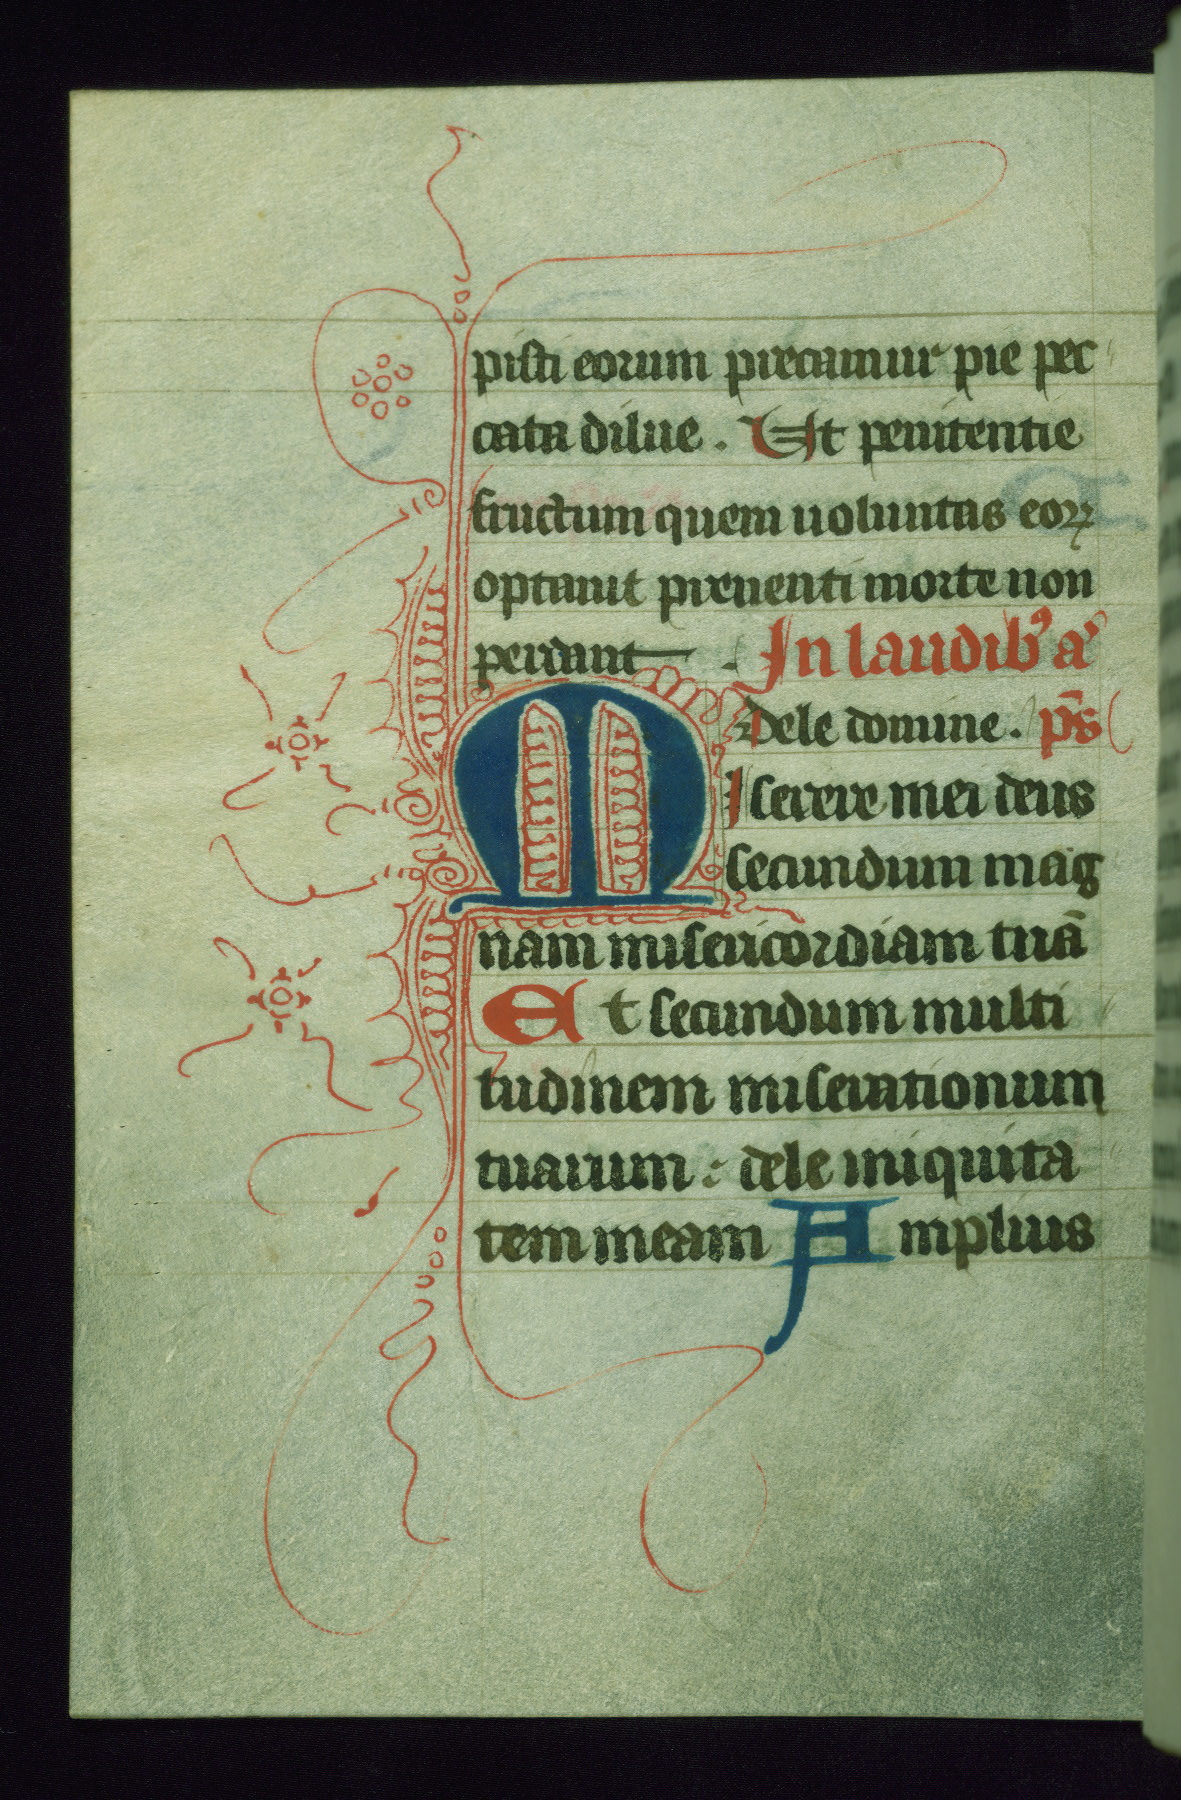 pisti eorum precamur pie pec
cata dilue. Ut penitentie
fructum quem uoluntas eoꝝ
optauit preuenti morte non
perdant. In laudibꝰ aͣ
Dele domine. pͫs
Miserere mei deus
secundum mag
nam misericordiam tuā
Et secundum multi
tudinem miserationum
tuarum : dele iniquita
tem meam Amplius